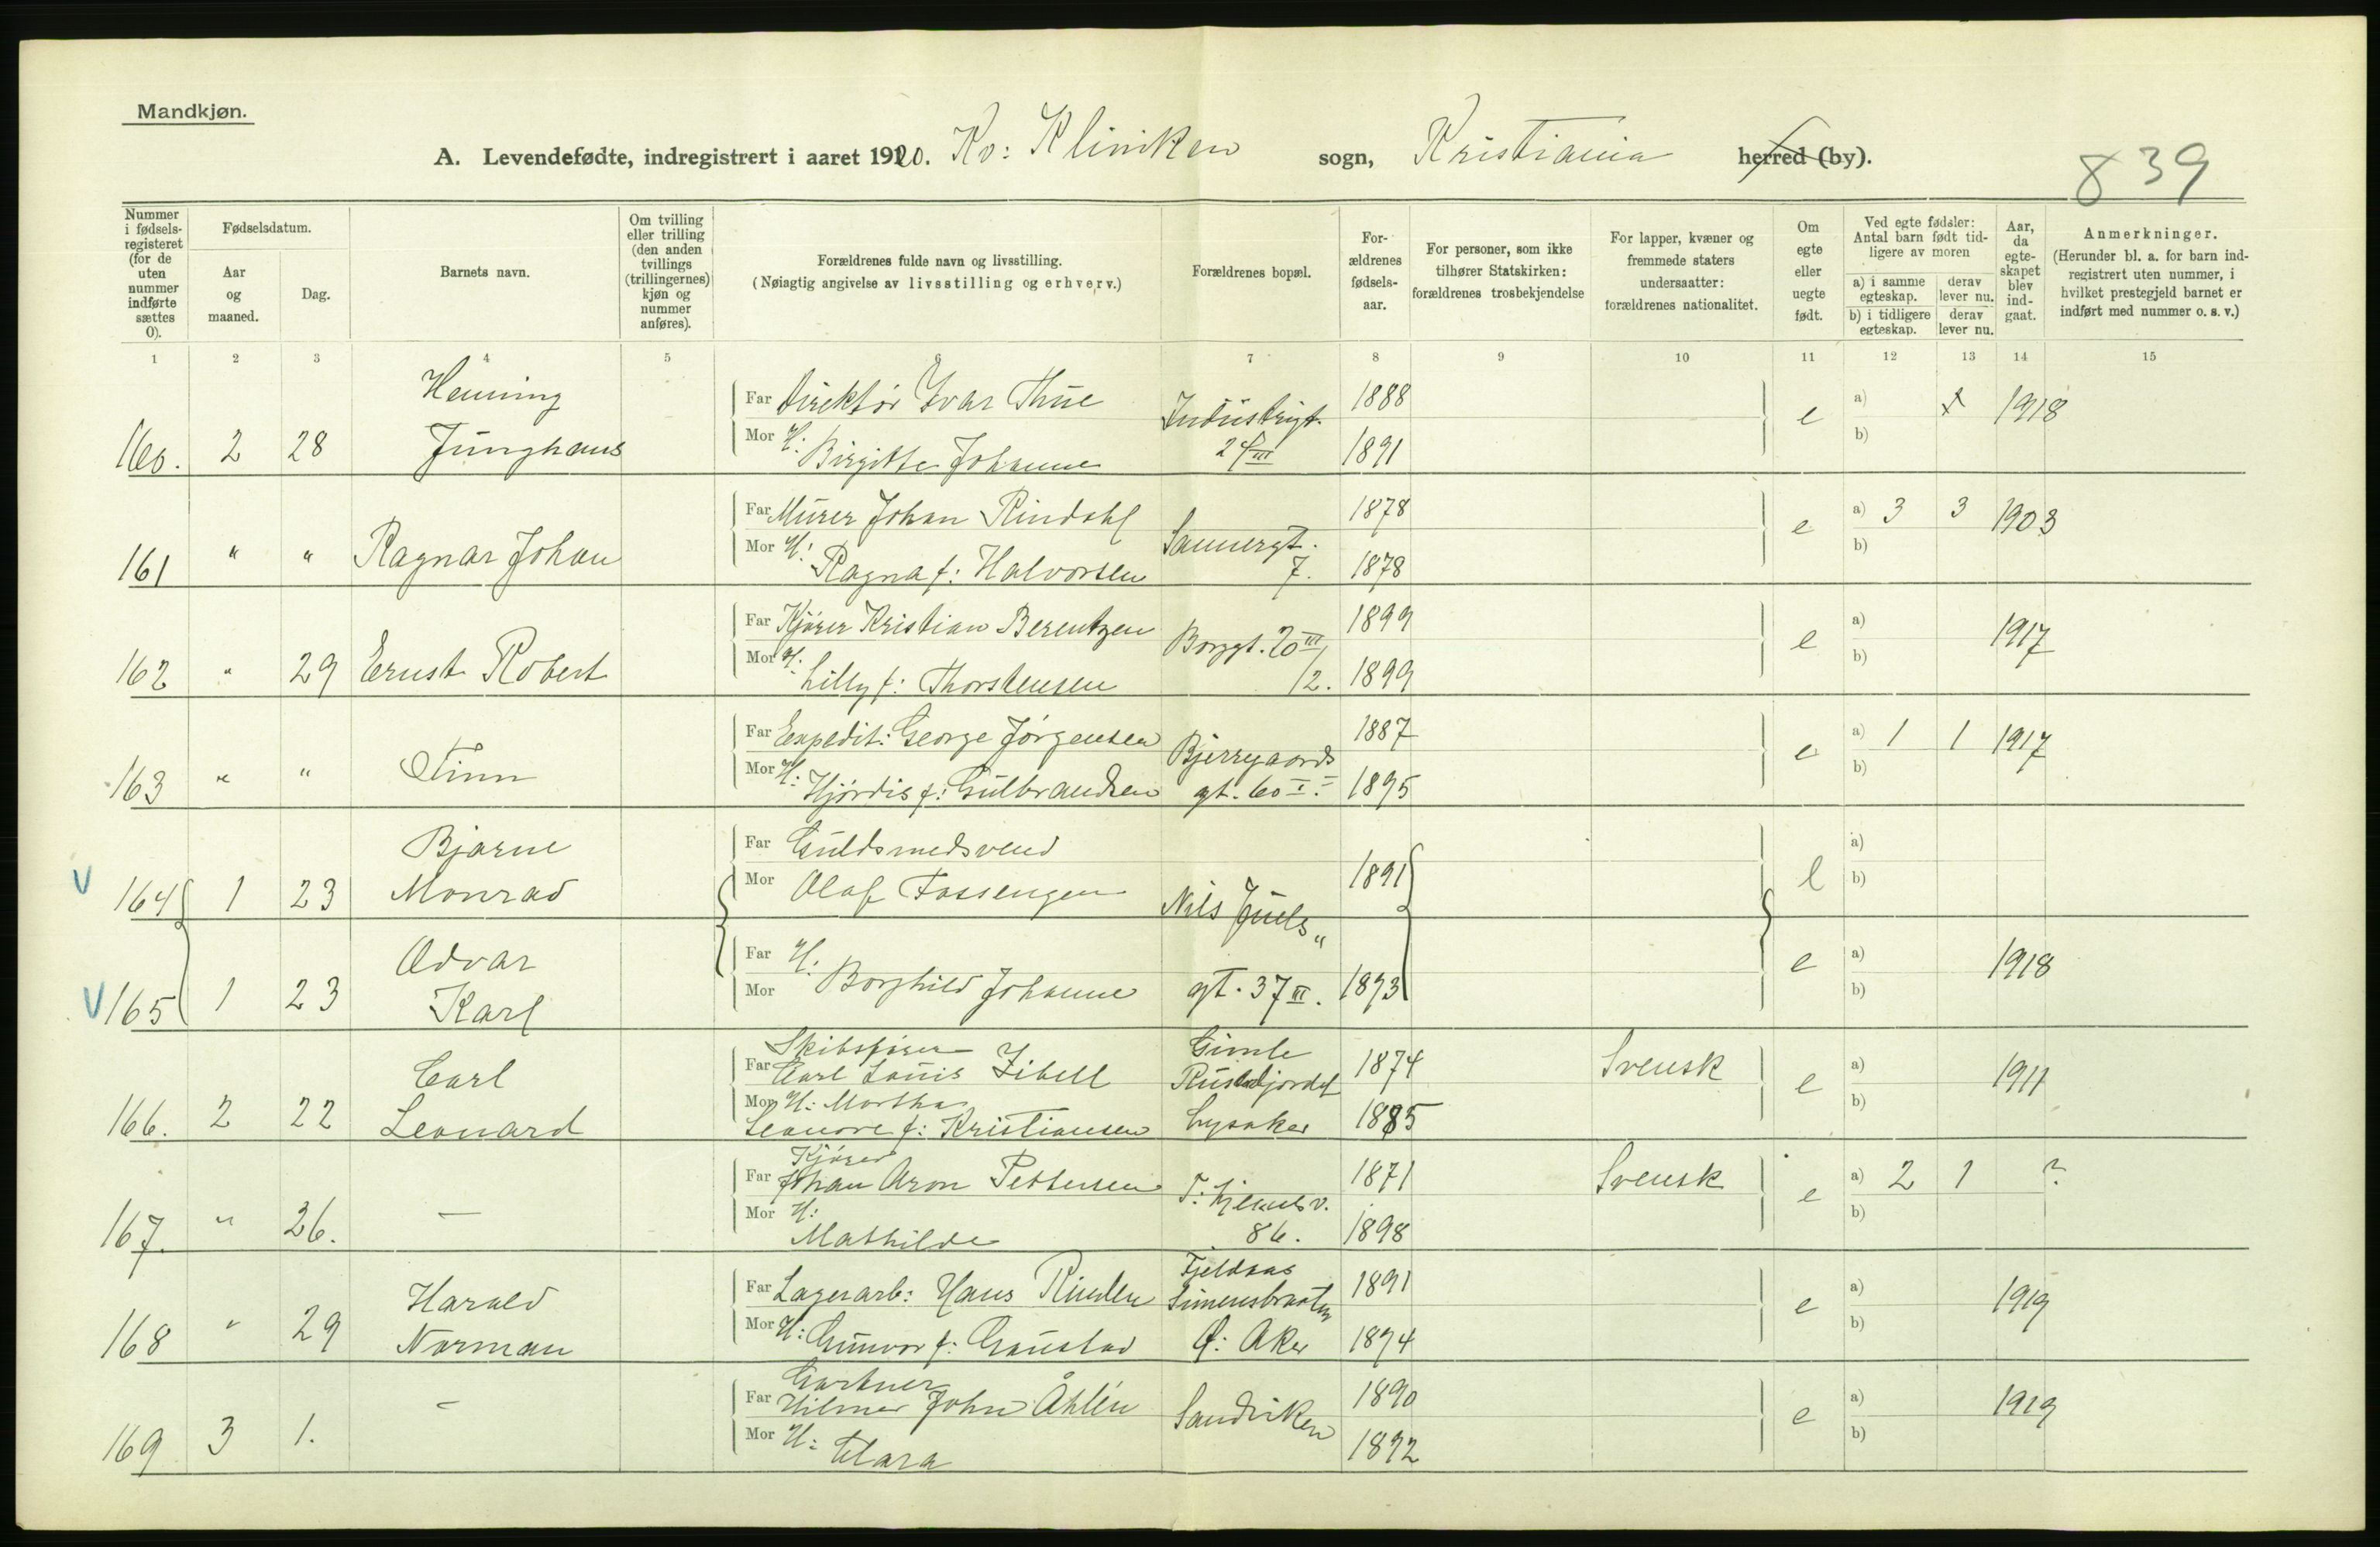 Mandkjøn.
A. Levendefødte, indregistrert i aaret 1920. Kv: Kliniken sogn, Kristiania herred (by).
839
Nummer i fødsels-registeret (for de uten nummer indførte sættes 0).
Fødselsdatum.
Aar og maaned.
Dag.
Barnets navn.
Om tvilling eller trilling (den anden tvillings (trillingernes) kjøn og nummer anføres).
Forældrenes fulde navn og livsstilling.
(Nøiagtig angivelse av livsstilling og erhverv.)
Forældrenes bopæl.
For-ældrenes fødsels-aar.
For personer, som ikke tilhører Statskirken: forældrenes trosbekjendelse
For lapper, kvæner og fremmede staters undersaatter: forældrenes nationalitet.
Om egte eller uegte født.
Ved egte fødsler: Antal barn født tid-ligere av moren
a) i samme egteskap. derav lever nu.
b) i tidligere egteskap. derav lever nu.
Aar, da egte-skapet blev ind-gaat.
Anmerkninger.
(Herunder bl. a. for barn ind-registrert uten nummer, i hvilket prestegjeld barnet er indført med nummer o. s. v.)
1 2 3 4 5 6 7 8 9 10 11 12 13 14 15
Henning Far Direktør Ivar Thue Industrigt. 1888 e a) 1918
160. 2 28 Junghans Mor H: Birgitte Johanne 1891 b)
Far Murer Johan Rindahl Sannergt. 1878 e a) 3 3 1903
161 " " Ragnar Johan Mor H: Ragna f: Halvorsen 7. 1878 b)
Far Kjører Kristian Berentzen Borggt. 20 III 1899 e a) 1917
162 " 29 Ernst Robert Mor H: Lilly f: Thorstensen /2. 1899 b)
Far Expedit: George Jørgensen Bjerregaards 1887 e a) 1 1 1917
163 " " Finn Mor H: Hjørdis f: Gulbrandsen gt. 60 I. 1895 b)
Bjarne Far Guldsmedsvend a)
V 164 1 23 Monrad Mor Olaf Fossengen Nils Juels " 1891 e b)
Odvar Far H: e a) 1918
V 165 1 23 Karl Mor Borghild Johanne gt. 37 III. 1893 b)
Skibsfører Gimle
Carl Far Carl Louis Zibell 1874 Svensk e a) 1911
166. 2 22 Leonard Mor H: Martha Leonore f: Kristiansen Lysaker 1885 b)
Kjører
Far Johan Aron Pettersen 1871 Svensk e a) 2 1 ?
167. " 26. — Mor H: Mathilde 86. 1898 b)
Fjeldaas
Harald Far Lagerarb: Hans Rinden Simensbraaten 1891 e a) 1919
168 " 29 Norman Mor H: Gunvor f: Gaustad Ø: Aker 1894 b)
Gartner
Far Hilmer John Åhlén Sandviken 1890 e a) 1919
169 3 1. — Mor H: Clara 1892 b)